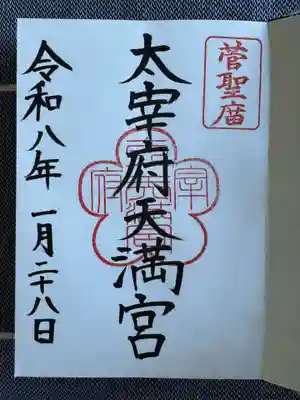 菅聖庿
太宰府天満宮
令和八年 一月二十八日